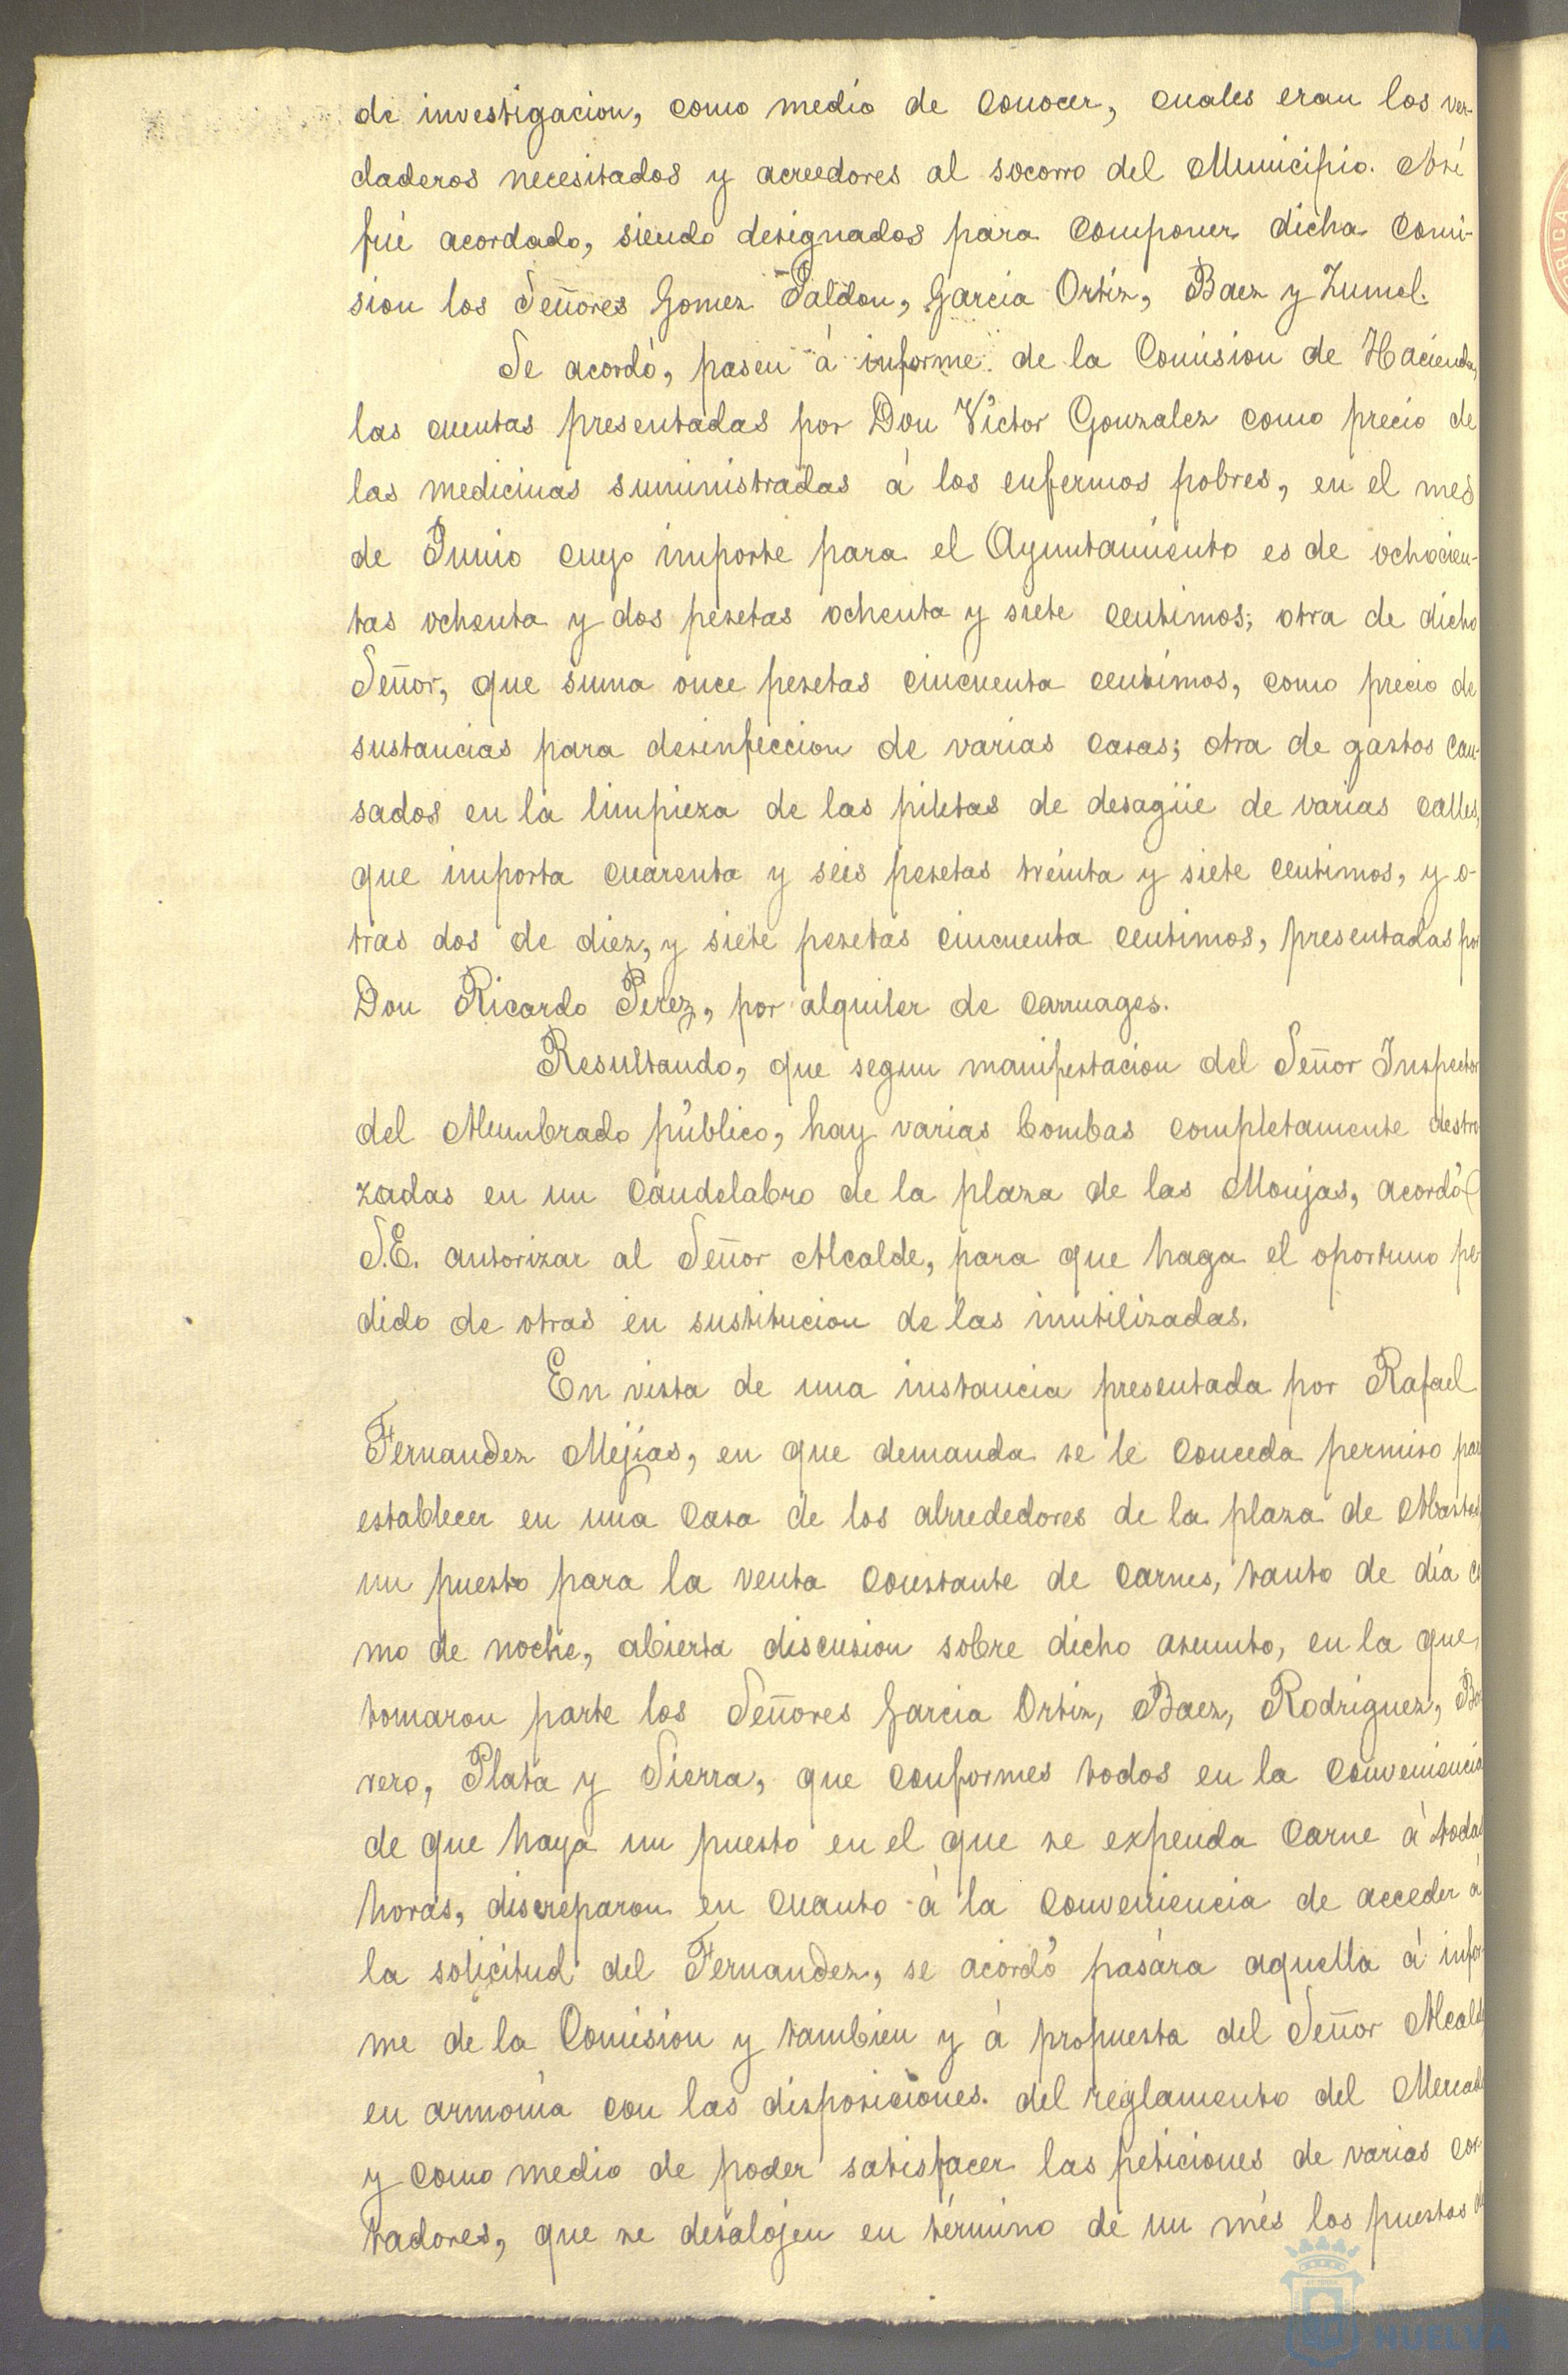 de investigacion, como medio de conocer, cuales eran los ver-
daderos necesitados y acreedores al socorro del Municipio. Así
fué acordado, siendo designados para componer dicha comi-
sion los Señores Gomez Paldon, Garcia Ortiz, Baez y Zumel.
Se acordó, pasen á informe de la Comision de Hacienda,
las cuentas presentadas por Don Víctor Gonzalez como precio de
las medicinas suministradas á los enfermos pobres, en el mes
de Junio cuyo importe para el Ayuntamiento es de ochocien-
tas ochenta y dos pesetas ochenta y siete centimos; otra de dicho
Señor, que suma once pesetas cincuenta centimos, como precio de
sustancias para desinfeccion de varias casas; otra de gastos cau-
sados en la limpieza de las piletas de desagüe de varias calles,
que importa cuarenta y seis pesetas treinta y siete centimos, y o-
tras dos de diez, y siete pesetas cincuenta centimos, presentadas por
Don Ricardo Perez, por alquiler de carruages.
Resultando, que segun manifestacion del Señor Inspector
del Alumbrado público, hay varias bombas completamente destro
zadas en un candelabro de la plaza de las Monjas, acordó
S.E. autorizar al Señor Alcalde, para que haga el oportuno pe-
dido de otras en sustitucion de las inutilizadas.
En vista de una instancia presentada por Rafael
Fernandez Mejias, en que demanda se le conceda permiso para
establecer en una casa de los alrrededores de la plaza de
un puesto para la venta constante de carnes, tanto de día co
mo de noche, abierta discusion sobre dicho asunto, en la que
tomaron parte los Señores Garcia Ortiz, Baez, Rodriguez,
vero, Plata y Sierra, que conformes todos en la conveniencia
de que haya un puesto en el que se expenda carne á todas
horas, discreparon en cuanto á la conveniencia de acceder á
la solicitud del Fernandez, se acordó pasára aquella á infor-
me de la Comision y tambien y á propuesta del Señor Alcalde
en armonía con las disposiciones del reglamento del Mercado
y como medio de poder satisfacer las peticiones de varios cor-
tadores, que se desalojen en término de un més los puestos
HUELVA